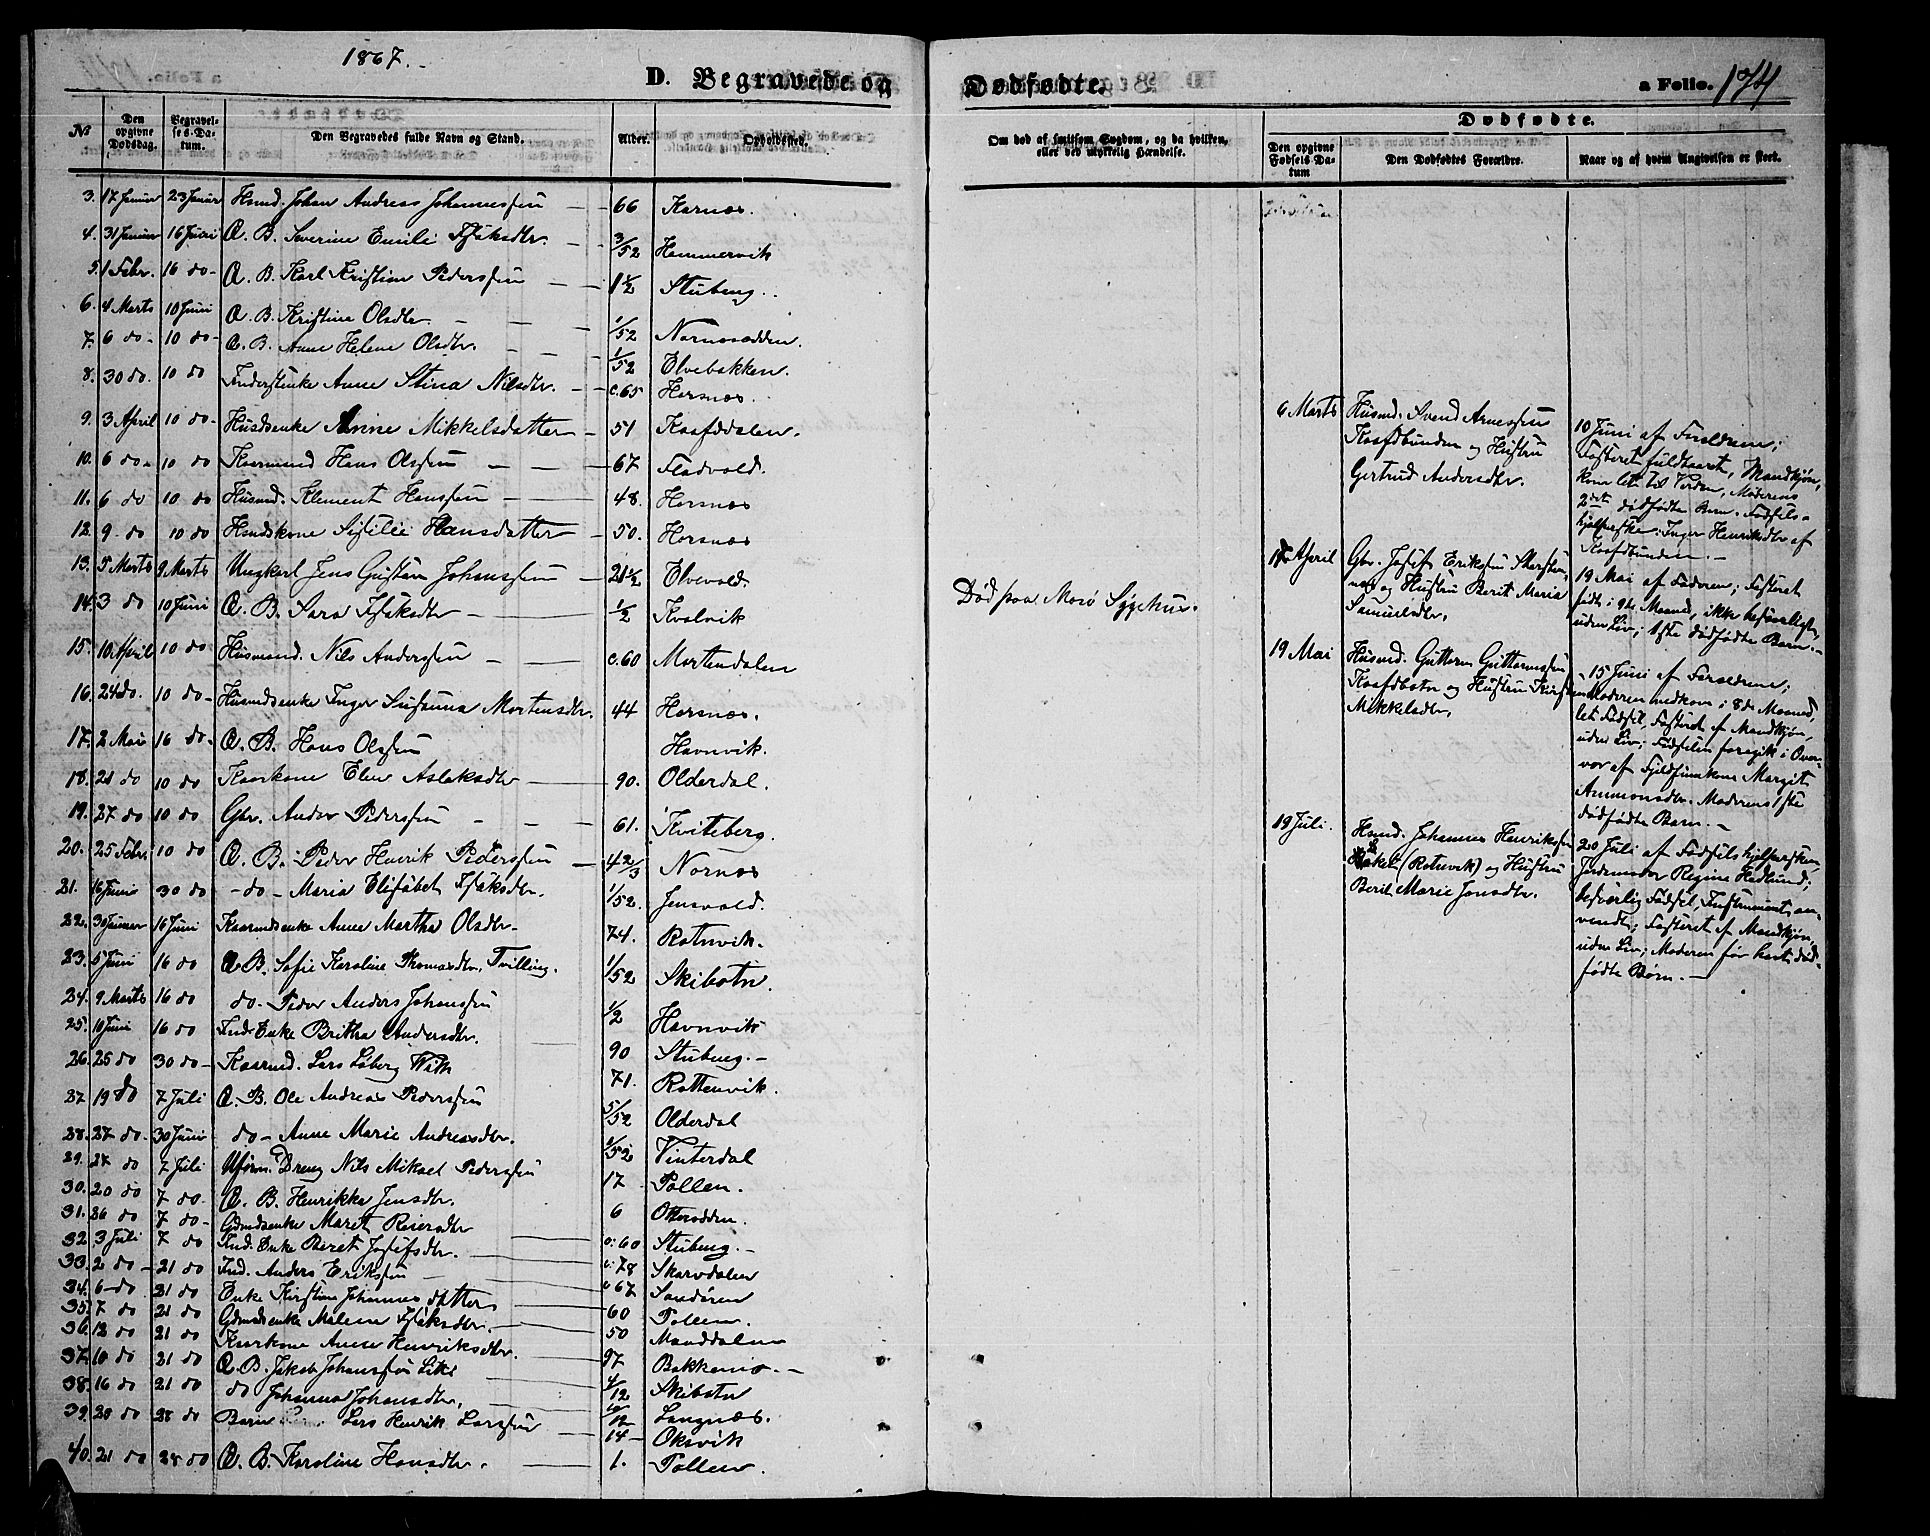 1867.
D. Begravede og Dødfødte.
a Folio. 174
No
Den opgivne Dødsdag.
Begravelses-Datum.
Den Begravedes fulde Navn og Stand.
Alder.
Opholdssted.
Om død af smitsom Sygdom, og da hvilken, eller ved ulykkelig Hændelse.
Dødfødte.
Den opgivne Fødsels-Datum
Den Dødfødtes Forældre.
Naar og af hvem Angivelsen er skeet.
3. 17 Januar 23 Januar Hsmd. Johan Andreas Johannessen 66 Karnæs.
4. 31 Januar 16 Juni Æ. B. Severine Emilie Isaksdtr. 3/52 Hammervik
5. 1 Febr. 16 do- Æ. B. Karl Kristian Pedersen 1 1/2 Stubeng.
6. 4 Marts 10 Juni Æ. B. Kristine Olsdtr. 1/52 Nornesodden.
7. 6 do- 10 do- Æ. B. Anne Helene Olsdtr. 1/52 Elvebakken.
8. 30 do. 10 do Inderstenke Anne Stina Nilsdtr. c.65 Horsnæs.
9. 3 April 10 do- Husdsenke Anne Mikkelsdatter 51 Kaafdalen.
10. 6 do- 10 do Kaarmand Hans Olsen 67 Fladvold.
11. 6 do 10 do Husmd. Klement Hansen 48. Horsnæs
12. 9 do 10 do Hsmdskone Sisilie Hansdatter 50. Horsnæs
13. 5 Marts 9 Marts Ungkarl Jens Gustav Johansen 21 1/2 Elvevold. Død paa Mosø Sygehus.
14. 3 do 10 Juni Æ. B. Sara Isaksdtr 1/2 Kvalvik
15. 10 April 10 do Husmand. Nils Andersen c.60 Mortendalen
16. 24 do. 10 do- Husmdsenke Inger Susanna Mortensdtr. 44 Horsnæs.
17. 2 Mai 16 do- Æ. B. Hans Olsen Havnvik.
18. 21 do 10 do Kaarkone Elen Aslaksdtr 90. Olderdal.
19. 27 do 10 do Gbr. Ander Pedersen 61. Kviteberg.
20. 25 Febr. 10 do Æ. B. Peder Henrik Pedersen 4 2/3 Nornæs
21. 16 Juni 30 do -do- Maria Elisabet Isaksdtr. 1/52. Jensvold.
22. 30 Januar 16 Juni Kaarmdsenke Anne Martha Olsdtr. 74. Rotnvik.
23. 5 Juni 16 do Æ B. Sofie Karoline Thomasdtr. Tvilling. 1/52 Skibotn.
24. 9 Marts 16 do do- Peder Anders Johansen 1/2 Havnvik
25. 10 Juni 16 do Ind. Enke Britha Andersdtr. 90 Stubeng.
26. 25 do 30 do- Kaarmd. Lars Løberg With 71. Rottenvik.
27 19 do 7 Juli Æ. B. Ole Andreas Pedersen 5/52 Olderdal
28. 27 do- 30 Juni do- Anne Marie Andreasdtr. 1/52 Vinterdal
29. 27 do 7 Juli Uform. Dreng Nils Mikael Pedersen 17 Pollen.
30. 20 do 7 do Æ. B. Henrikka Jensdtr. 6 Otterodden.
31. 26 do 7 do- Gdmdsenke Maret Reiersdtr c:60 Stubeng.
32. 3 Juli 7 do Ind. Enke Beret Josefsdtr. c:78 Skarvdalen
33. 2 do- 21 do Ind. Anders Eriksen c 67 Sandøren
34. 6 do 21 do Enke Kirstine Johannesdatter 60 Pollen.
35. 7 do 21 do Gdmdsenke Malene Isaksdtr. 50 Manddalen
36. 12 do 21 do Kaarkone Anne Henriksdtr. 97 Bakkenes.
37. 10 do 21 do Æ. B. Jakob Johansen Like 4/12 Skibotn
38. 16 do 21 do do Johanna Johansdtr. 10/12 Langnæs.
39. 20 do 28 do Barn Lars Henrik Larssen 14 Oksvik
40. 21 do 28 do Æ. B. Karoline Hansdtr. 1. Pollen.
6 Marts
Husmd. Svend Arnessen
Kaafdbunden og Hustru
Gertrud Andersdtr.
10 Juni af Forældrene;
Fosteret fuldbaaret, Mandkjøn,
kom let til Verden, Moderens
2det dødfødte Barn. Fødsels-
hjelperske: Inger Henriksdtr af
Kaafdbunden.
18 April
Gbr. Josef Eriksen
og Hustru Berit Maria
Samuelsdtr.
19 Mai af Faderen; Fosteret
født i 9de Maaned, ikke
uden Liv; 1ste dødfødte Barn.
19 Mai
Husmd. Guttorm Guttormsen
Kaafdbotn og Hustru Kirsten
Mikkelsdtr.
15 Juni af Forældrene;
Moderen nedkom i 8de Maaned,
let Fødsel, Fosteret af Mandkjøn,
uden Liv; Fødselen foregik i
af Fjeldfinnkone Margit
Ammonsdtr. Moderens 1ste
dødfødte Barn.
19 Juli.
Hsmd. Johannes Henriksen
(Rotnvik) og Hustru
Berit Marie Jonsdtr.
20 Juli af Fødselshjelpersken,
Jordemoder Regine Hedlund;
besværlig Fødsel, Instrument an-
vendt; Fosteret af Mandkjøn,
uden Liv; Moderen før havt død-
fødte Børn.